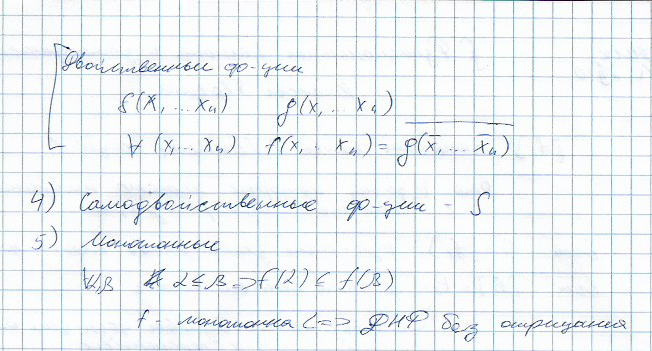 Двойственные ф-ции
f(x, ... xₙ) g(x, ... xₙ)
∀ (x, ... xₙ) f(x, .. xₙ) = \overline{g(x̄, ... x̄ₙ)}
4) Самодвойственные ф-ции - S
5) Монотонные
∀α,β α ≤ β => f(α) ≤ f(β)
f - монотонна <=> ДНФ без отрицания